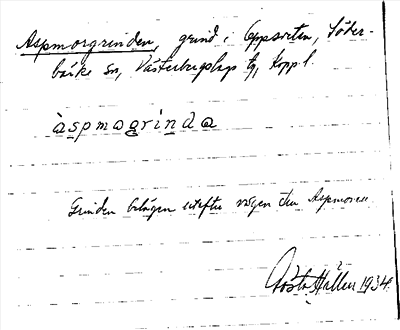 Aspmorgrinden, grind i Oppsveten, Söder-
bärke sn, Västerbergslags tg, Koppl.
àspmogrinda
Grinden belägen utefter vägen över Aspmoren
Gösta Hallin 1934.